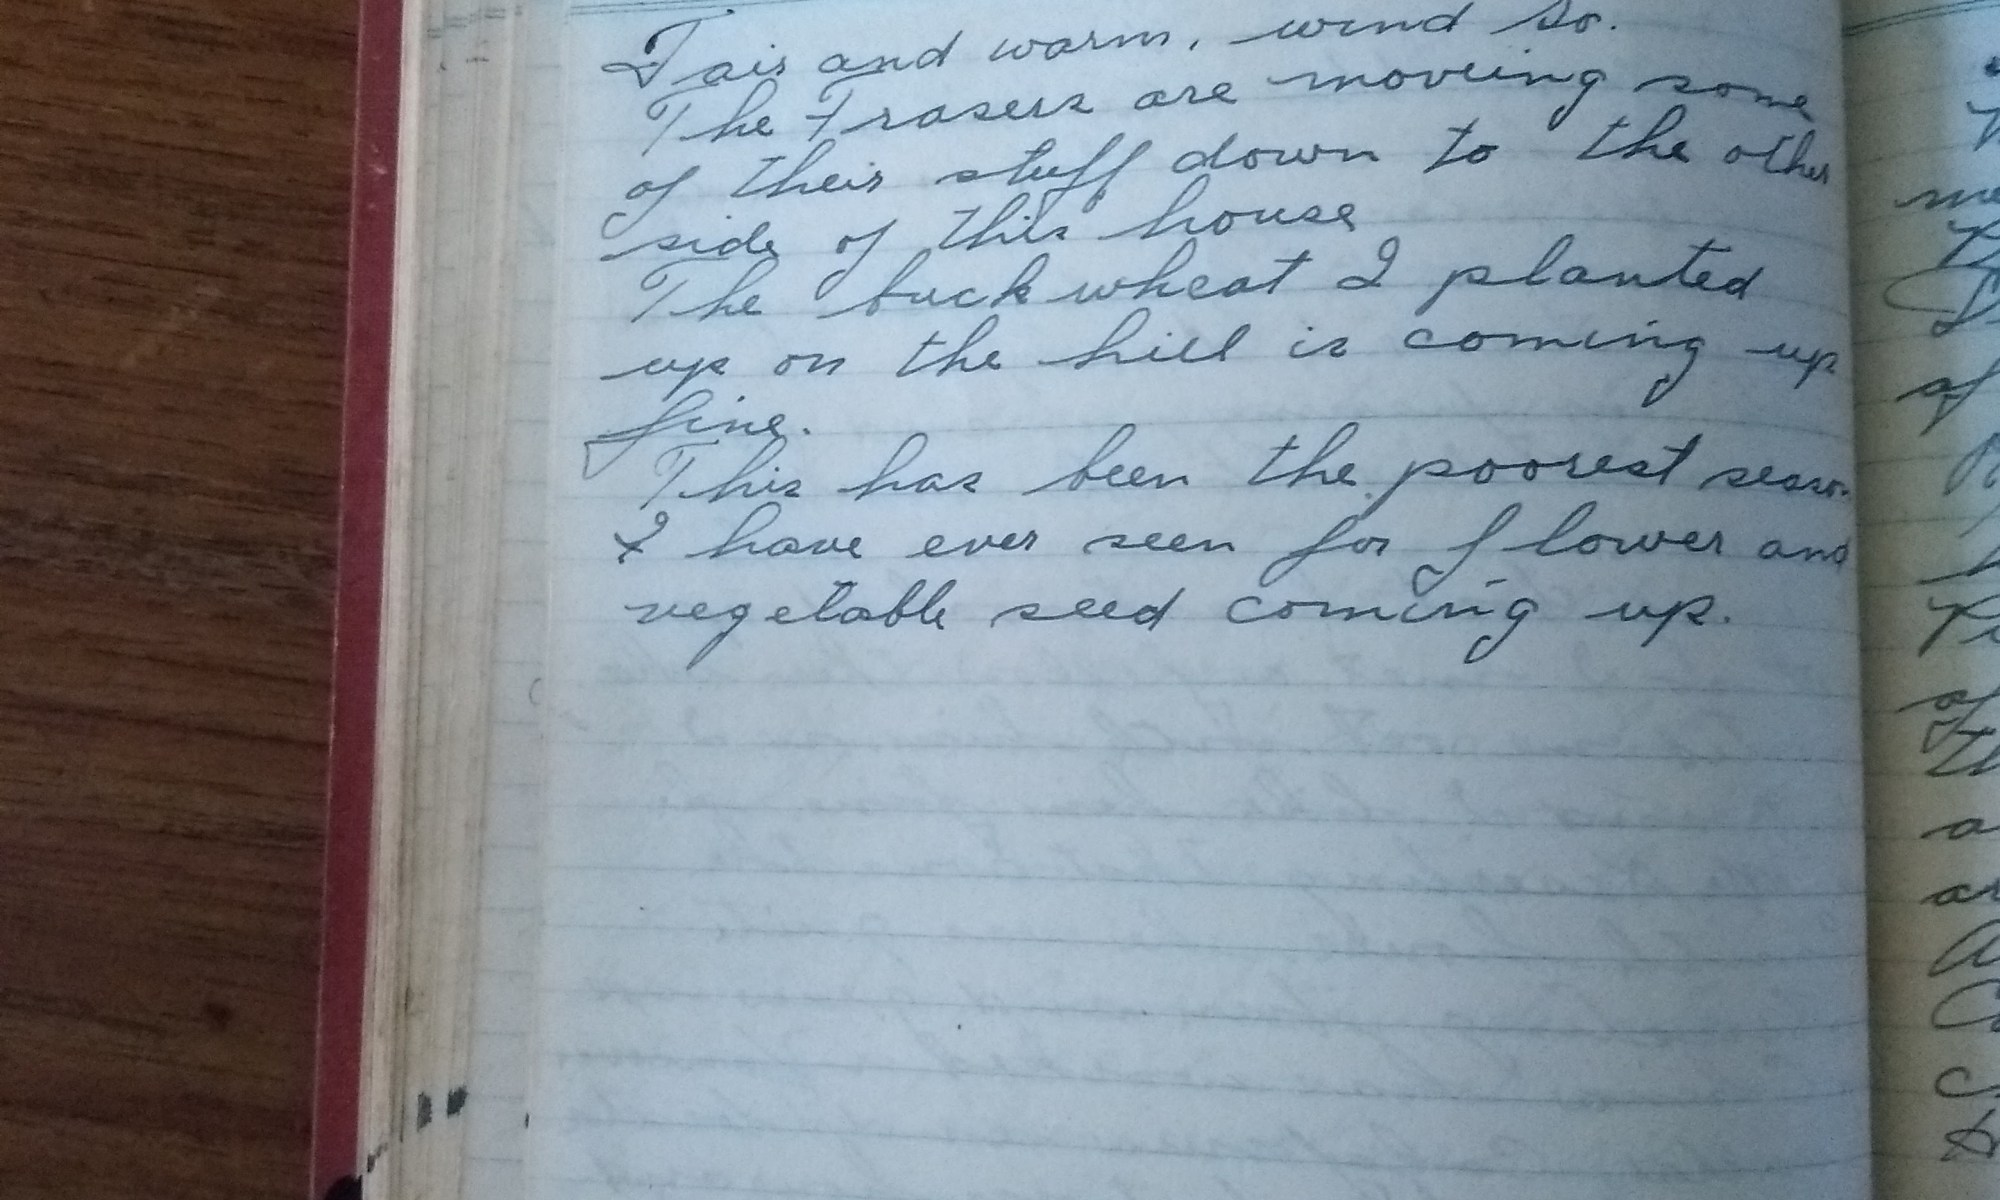 Fair and warm, wind So.
The Frasers are moveing some
of their stuff down to the other
side of this house
The buckwheat I planted
up on the hill is coming up
fine.
This has been the poorest season
I have ever seen for flower and
vegetable seed coming up.